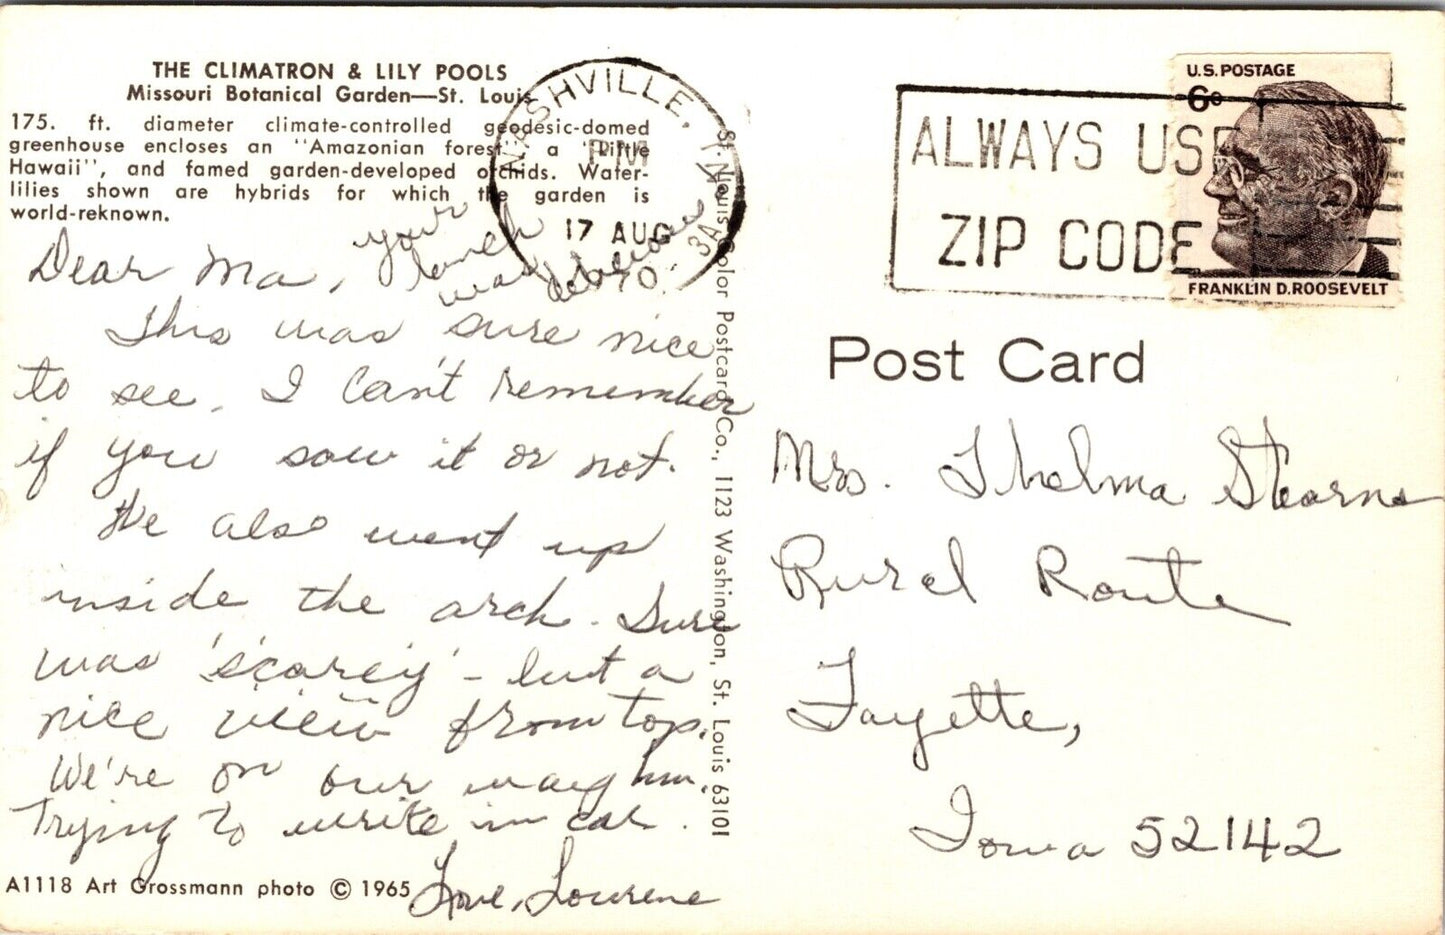 THE CLIMATRON & LILY POOLS
Missouri Botanical Garden—St. Louis
175. ft. diameter climate-controlled geodesic-domed
greenhouse encloses an "Amazonian forest" a "little
Hawaii", and famed garden-developed orchids. Water-
lilies shown are hybrids for which the garden is
world-reknown.
your
lunch
was delicious
Dear Ma,
This was sure nice
to see. I can't remember
if you saw it or not.
We also went up
inside the arch. Sure
was 'scarey' - but a
nice view from top.
We're on our way hm.
Trying to write in car.
Love, Lourene
A1118 Art Grossmann photo © 1965
St. Louis Color Postcard Co., 1123 Washington, St. Louis 63101
NASHVILLE, TN
PM
17 AUG
1970
ALWAYS USE
ZIP CODE
U.S. POSTAGE
6c
FRANKLIN D. ROOSEVELT
Post Card
Mrs. Thelma Stearns
Rural Route
Fayette,
Iowa 52142